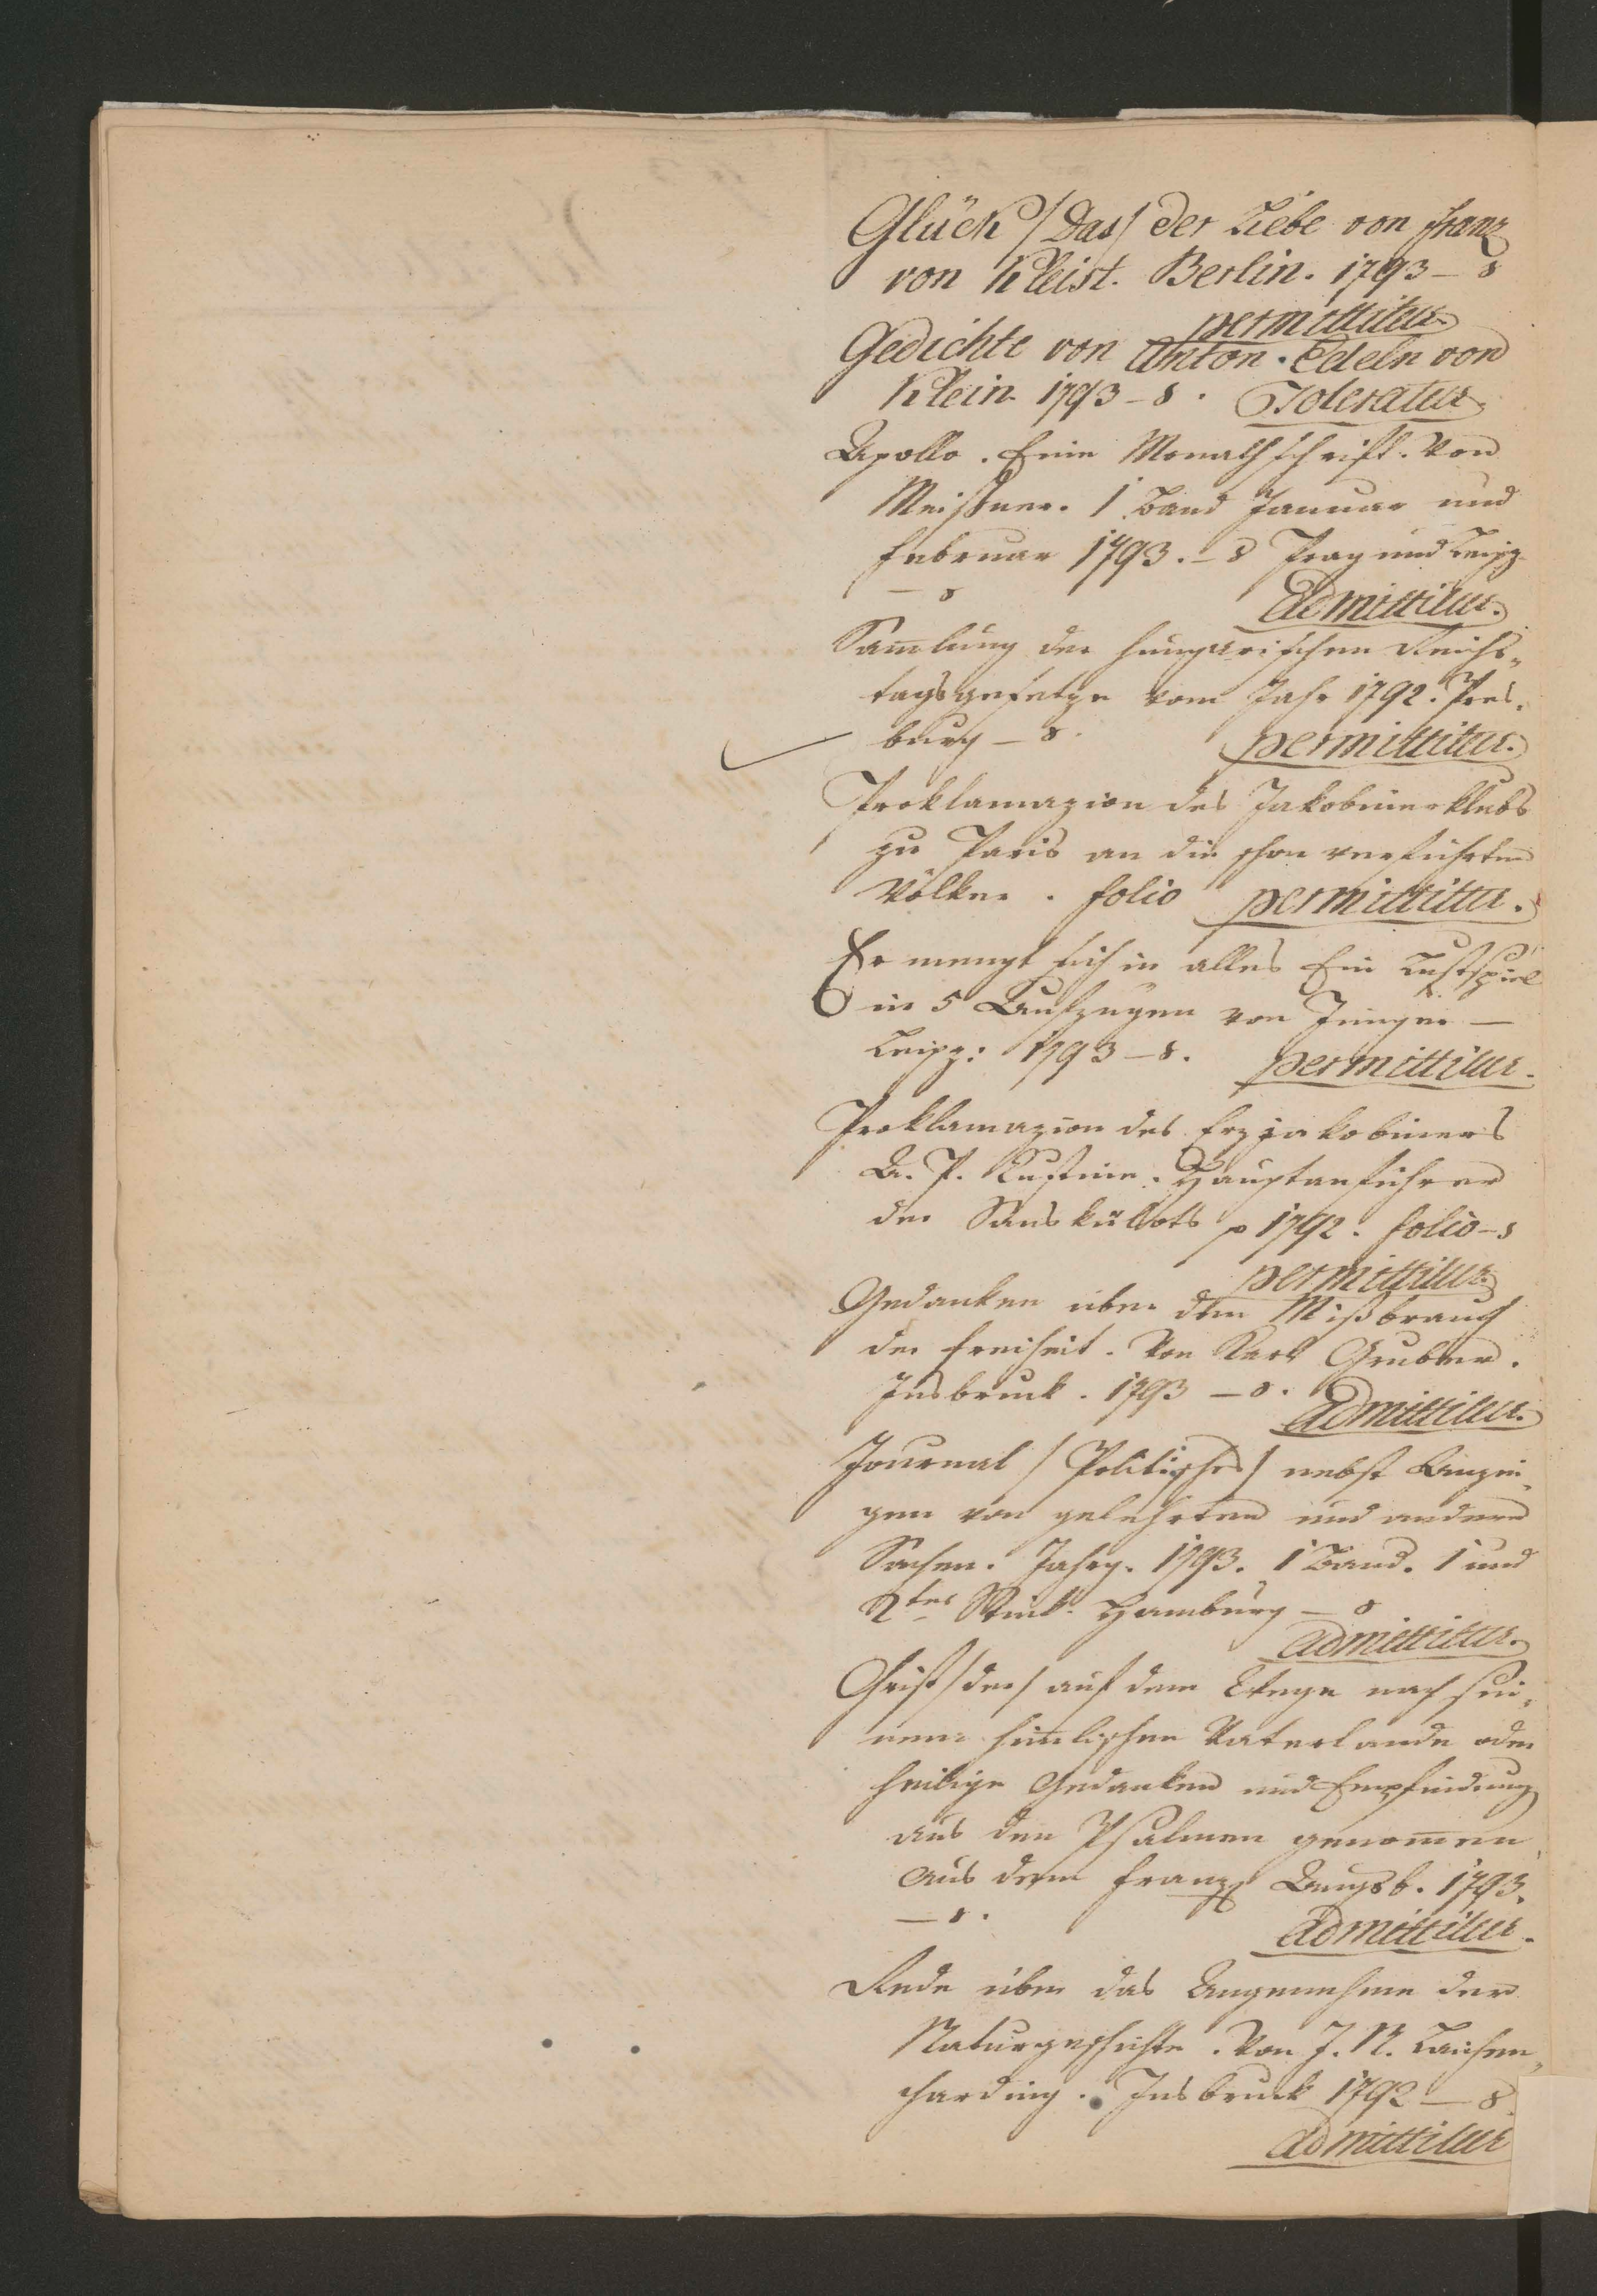 Glück /das/ der Liebe von Franz
von Kleist. Berlin. 1793 – 8
permittitur.
Gedichte von Anton Edeln von
Klein 1793 – 8. Toleratur.
Apollo. Eine Monathschrift. Von
Meißner. 1 Band Januar und
Februar 1793. – 8 Prag und Leipz.
– 8 Admittitur.
Sam̄lung der hungarischen Reichs„
tagsgesetze vom Jahr 1792. Pres„
burg – 8. permittitur.
Proklamazion des Jakobinerklubs
zu Paris an die schon verführten
Völker. folio permittitur.
Er mengt sich in alles Ein Lustspiel
in 5 Aufzügen von Jünger –
Leipz: 1793 – 8. permittitur.
Proklamazion des Erzjakobiners
A. P. Kustine. Hauptanführer
der Sanskülots p 1792. folio – 8
permittitur.
Gedanken über den Mißbrauch
der Freiheit. Von Karl Gruber.
Insbruck. 1793 – 8. Admittitur.
Journal /Politisches/ nebst Anzei„
gen von gelehrten und andern
Sachen. Jahrg. 1793. 1 Band. 1 und
2tes Stück. Hamburg – 8
admittitur.
Christ /der/ auf dem Wege nach sei„
nem him̄lischen Vaterlande oder
heilige Gedanken und Empfindung
aus den Psalmen genom̄en
aus dem Franz Augsb. 1793.
– 8. admittitur.
Rede über das Angenehme der
Naturgeschichte. Von J. N. Laichen„
charding. Insbruck 1792 – 8.
admittitur